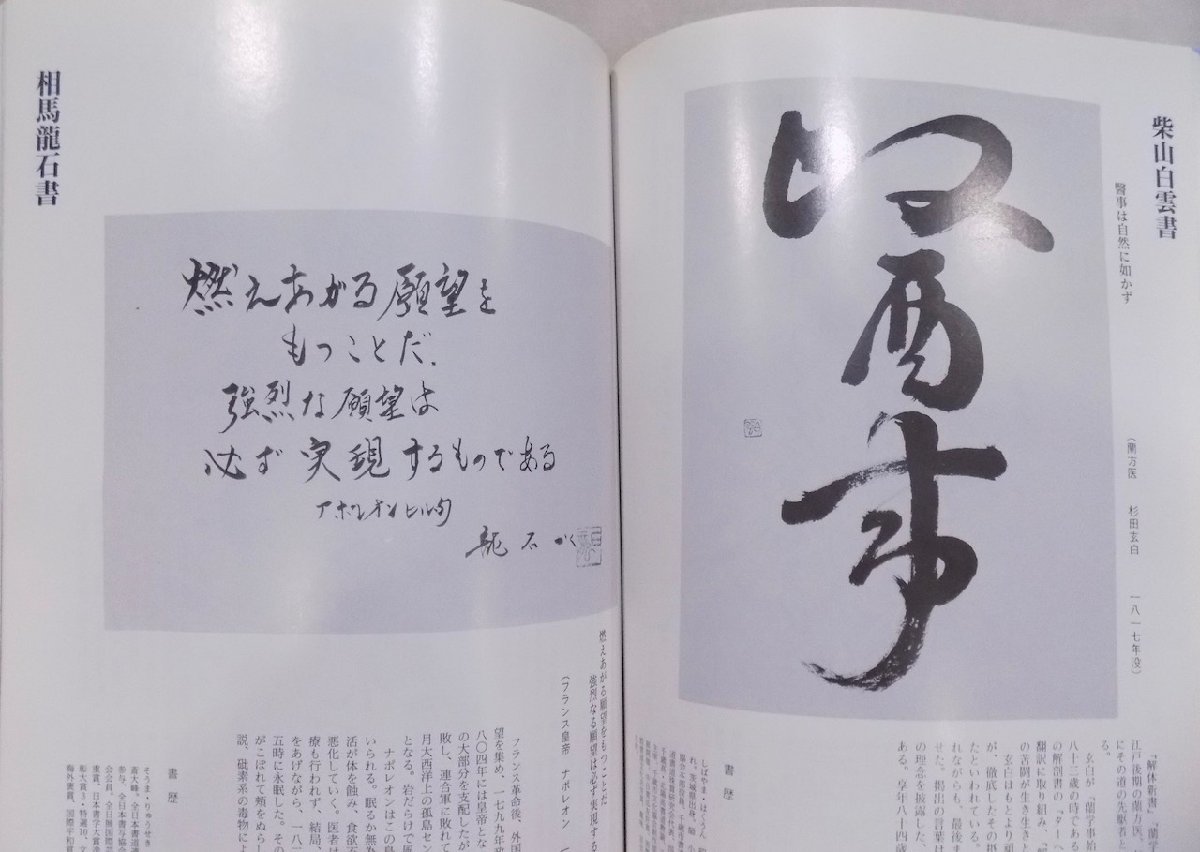 柴山白雲書
醫事は自然に如かず
(蘭方医 杉田玄白 一八一七年没)
醫事
「解体新書」「蘭学
江戸後期の蘭方医、
にその道の先駆者と
る。
玄白が「蘭学事始
八十三歳の時である
の解剖書の「ターヘ
翻訳に取り組み、
の苦闘が生き生きと
玄白はもとより初
が、徹底したその掲
たといわれている。
れながらも、最後ま
せた。掲出の言葉は
の理念を披露した、
ある。享年八十四歳
書歴
しばやま・はくうん
相馬龍石書
燃えあがる願望を
もつことだ、
強烈な願望は
必ず実現するものである
ナポレオンヒル句
龍石かく
燃えあがる願望をもつことだ
強烈なる願望は必ず実現する
(フランス皇帝 ナポレオン
フランス革命後、外国
望を集め、一七九九年
八〇四年には皇帝とな
の大部分を支配したが
敗し、連合軍に敗れて
月大西洋上の孤島セン
となる。岩だらけで風
いられる。眠るか無為
ナポレオンはこの島
活が体を蝕み、食欲不
悪化していく。医者は
療も行わず、結局、
をあげながら、一八
五時に永眠した。その
がこぼれて頬をぬら
説、砒素系の毒物によ
書歴
そうま・りゅうせき